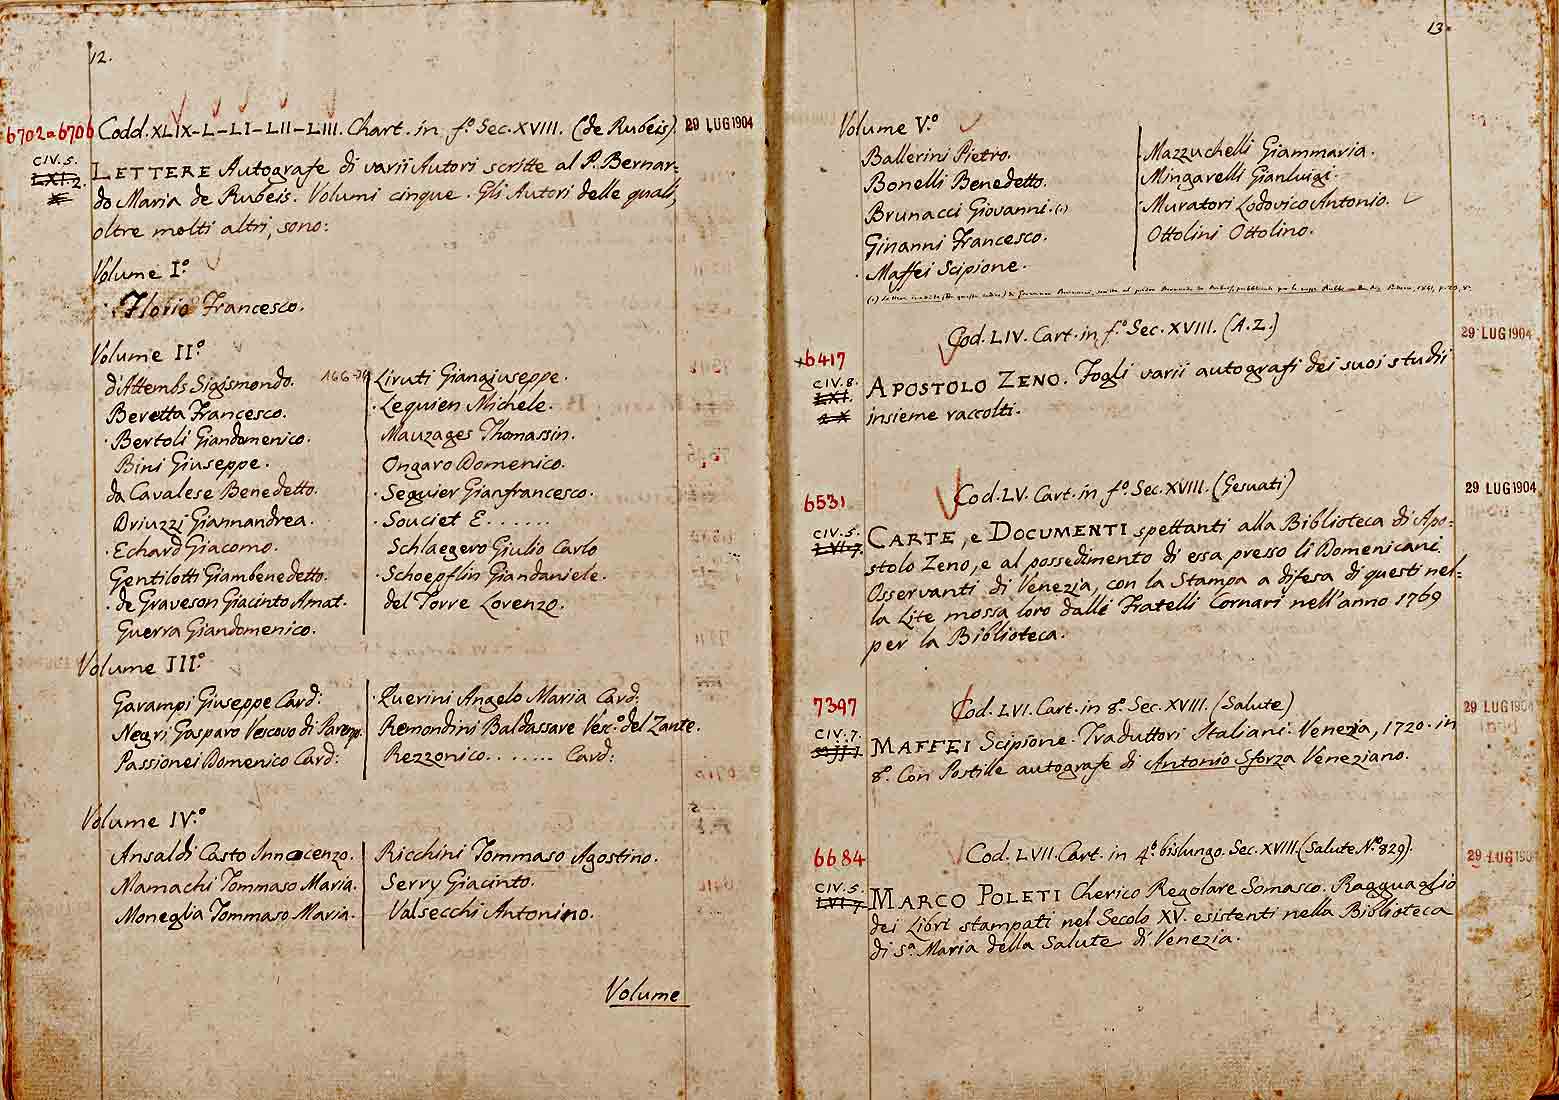 12.
6702 a 6706 Codd. XLIX-L-LI-LII-LIII. Chart. in fº. Sec. XVIII. (de Rubeis). 29 LUG 1904
CIV. 5. LETTERE Autografe di varii Autori scritte al P. Bernar=
LXI. 2. do Maria de Rubeis. Volumi cinque. Gli Autori delle quali,
oltre molti altri, sono:
Volume Iº.
Florio Francesco.
Volume IIº.
di Attembs Sigismondo.
Beretta Francesco.
Bertoli Giandomenico.
Bini Giuseppe.
da Cavalese Benedetto.
Driuzzi Giannandrea.
Echard Giacomo.
Gentilotti Giambenedetto.
de Graveson Giacinto Amat.
Guerra Giandomenico.
Liruti Giangiuseppe.
Lequien Michele.
Mauzages Thomassin.
Ongaro Domenico.
Seguier Gianfrancesco.
Souciet E. . . . . . .
Schlaegero Giulio Carlo
Schoepflin Giandaniele.
del Torre Lorenzo.
Volume IIIº.
Garampi Giuseppe Card:
Negri Gasparo Vescovo di Parenzo.
Passionei Domenico Card:
Querini Angelo Maria Card:
Remondini Baldassare Vesc.º del Zante.
Rezzonico. . . . . . . . Card:
Volume IV.º
Ansaldi Casto Innocenzo.
Mamachi Tommaso Maria.
Moneglia Tommaso Maria.
Ricchini Tommaso Agostino.
Serry Giacinto.
Valsecchi Antonino.
Volume
13.
Volume V.º
Ballerini Pietro.
Bonelli Benedetto.
Brunacci Giovanni. (1)
Ginanni Francesco.
Maffei Scipione.
Mazzuchelli Giammaria.
Mingarelli Gianluigi.
Muratori Lodovico Antonio.
Ottolini Ottolino.
Cod. LIV. Cart. in fº. Sec. XVIII. (A.Z.) 29 LUG 1904
6417
CIV. 8. APOSTOLO ZENO. Fogli varii autografi dei suoi studii
LXI. insieme raccolti.
Cod. LV. Cart. in fº. Sec. XVIII. (Gesuati) 29 LUG 1904
6531
CIV. 5. CARTE, e DOCUMENTI spettanti alla Biblioteca di Apo=
LVI. 7. stolo Zeno, e al possedimento di essa presso li Domenicani
Osservanti di Venezia, con la Stampa a difesa di questi nel=
la Lite mossa loro dalli Fratelli Cornari nell'anno 1769
per la Biblioteca.
7397 Cod. LVI. Cart. in 8º. Sec. XVIII. (Salute) 29 LUG 1904
CIV. 7. MAFFEI Scipione. Traduttori Italiani. Venezia, 1720. in
8º. Con Postille autografe di Antonio Sforza Veneziano.
6684 Cod. LVII. Cart. in 4º. bislungo. Sec. XVIII. (Salute Nº. 829). 29 LUG 1904
CIV. 5. MARCO POLETI Cherico Regolare Somasco. Ragguaglio
LVI. 7. dei Libri stampati nel Secolo XV. esistenti nella Biblioteca
di Sª. Maria della Salute di Venezia.